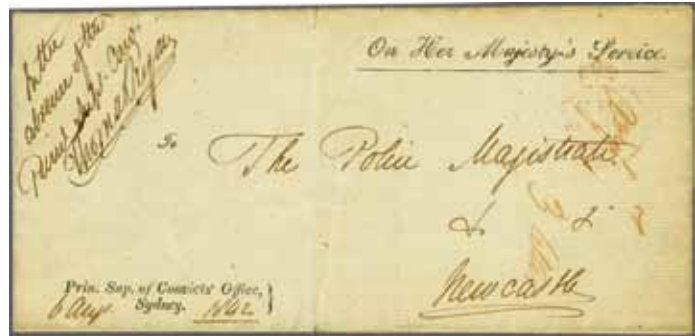 In the
absence of the
Princl Supt. Conv.
Thomas Ryan
On Her Majesty's Service.
To
The Police Magistrate
& &
Newcastle
Prin. Sup. of Convicts' Office,
Sydney.
6 Augt 1842